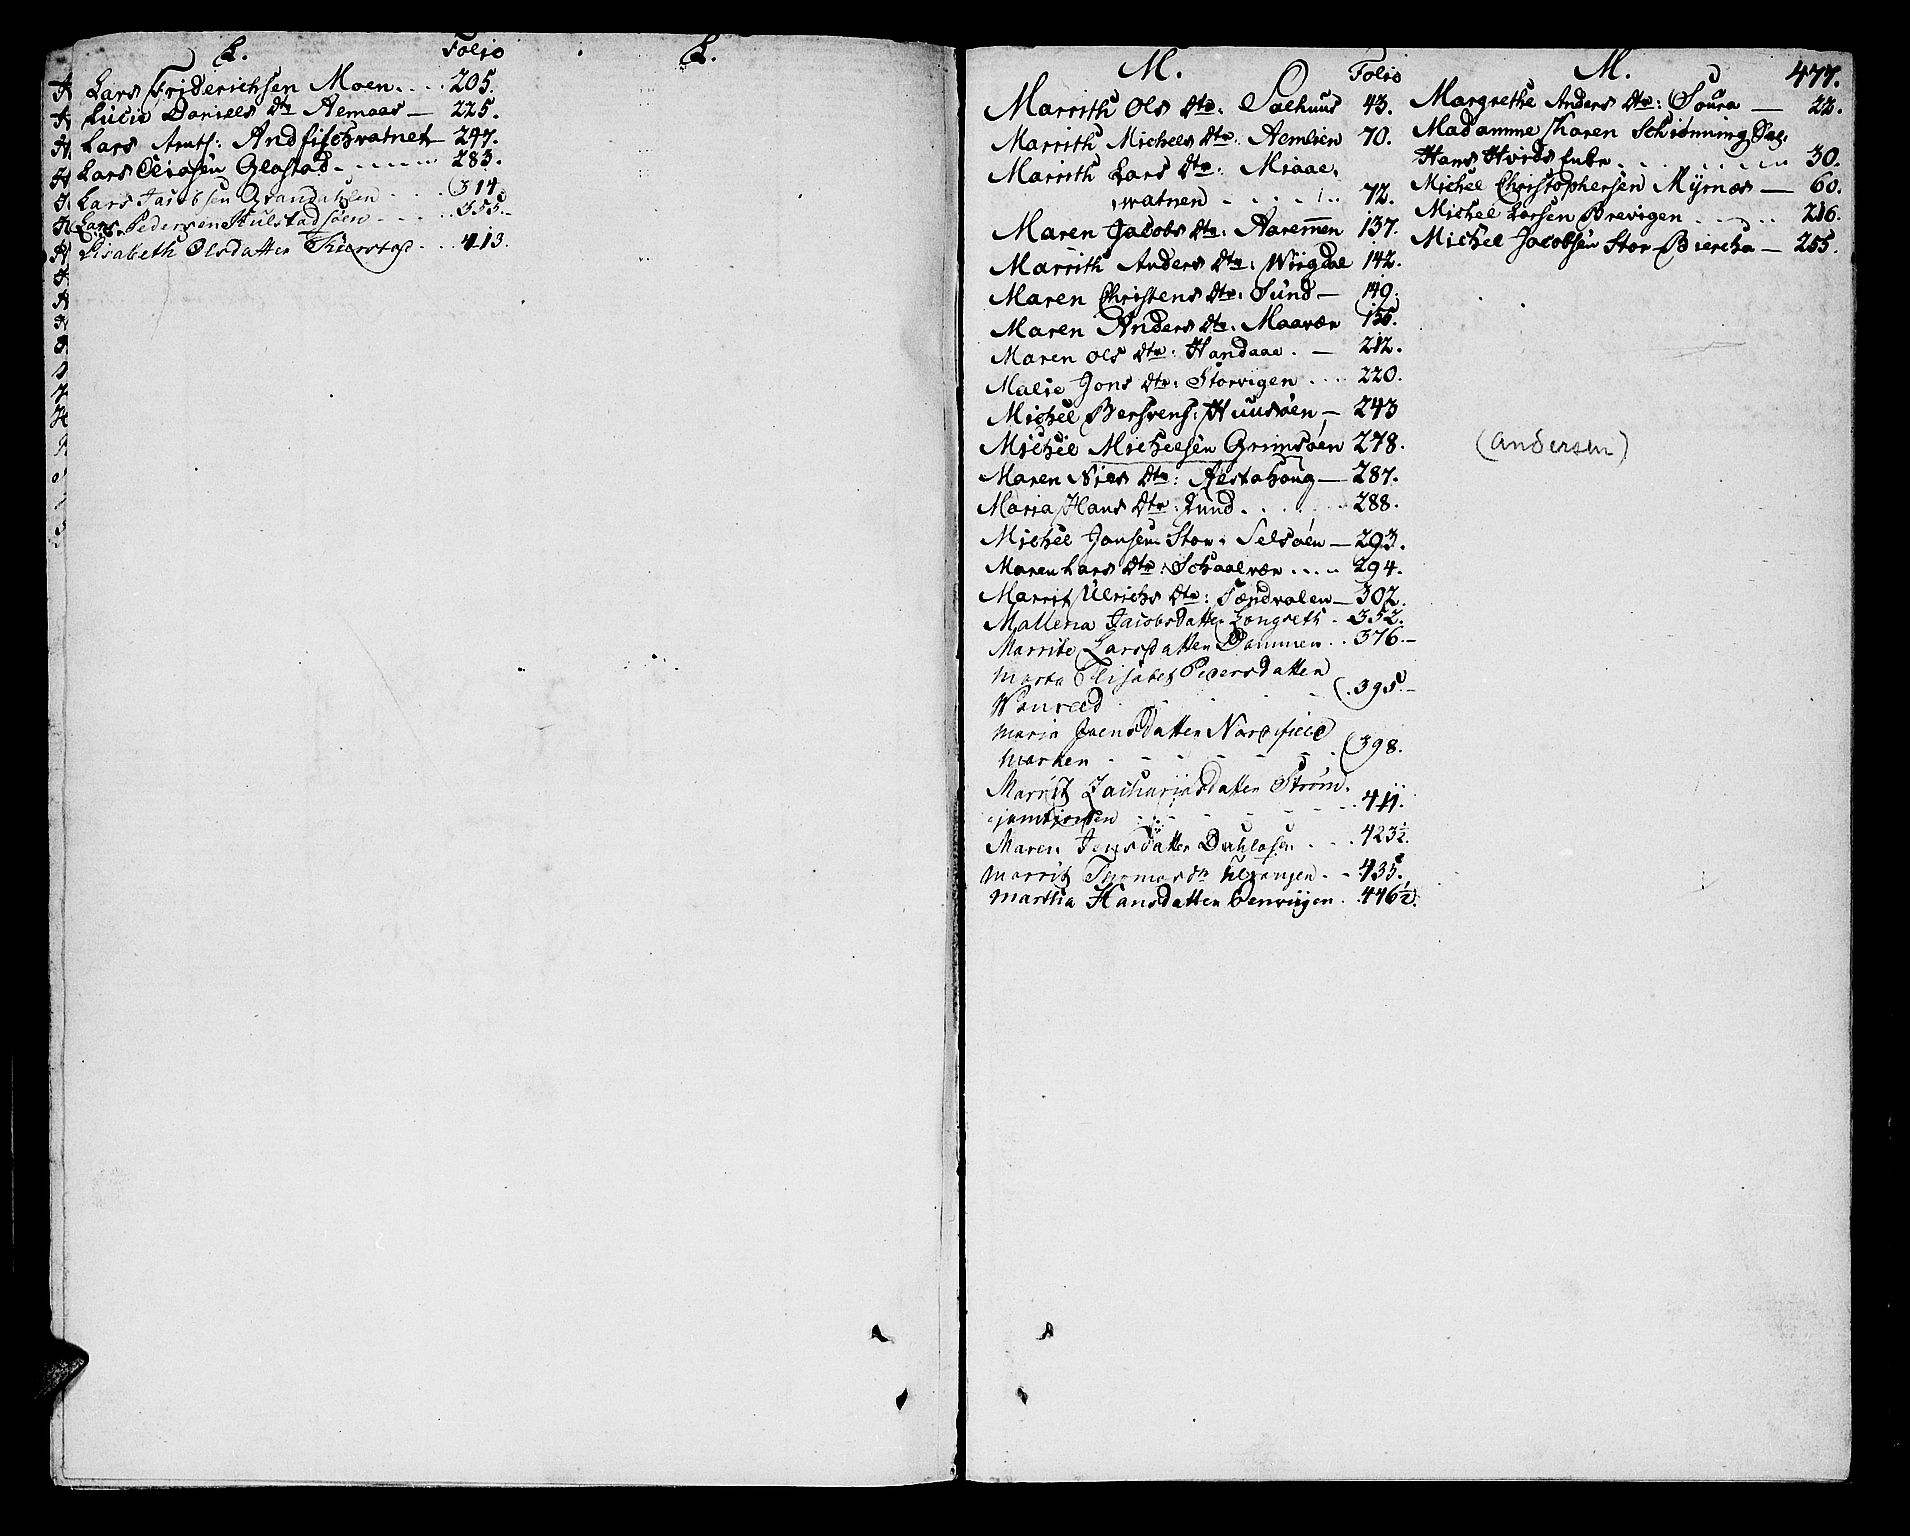 L. Folio L.
Lars Friderichsen Moen .... 205.
Lucie Daniels Dtr Aemaes — 225.
Lars Arntf: Andfischvatnet 247.
Lars Eliasen Glastad 283.
Lars Jacobsen Grandahlen 314.
Lars Pedersen Hulstadsøen 355.
Lisabeth Olsdatter Thiorstad 413.
M. Folio
Marrith Ols Dtr: Saehuus 43.
Marrith Michels Dtr: Aemlien 70.
Marrith Lars Dtr: Miaae,
watnen 72.
Maren Jacobs Dtr: Aaremen 137.
Marrith Anders Dtr: Wiigdae 142.
Maren Christens Dtr: Sund — 149.
Maren Anders Dtr: Maavær 155.
Maren Ols Dtr: Handaae. — 212.
Malie Jons Dtr: Storvigen .... 220.
Michel Bersvens: Huusøen — 243
Michel Michelsen Grimsøen 278.
Maren Niels Dtr: Alstahoug — 287.
Maria Hans Dtr: Lund 288.
Michel Jonsen Stor: Selsøen — 293.
Maren Lars Dtr: Schaalvær .... 294.
Marrit Ulrichs Dtr: Sændvalen — 302.
Mallena Jacobsdatter Longseth 352.
Marrite Larsdatter Dommen 376.
Marta Elisabet Pedersdatter
395.
Maria Joensdatter Nordfield
marken 398.
Marrit Zachariasdatter Strøm,
411.
Maren Jensdatter Dahlosen 423½.
Marrit Thomasdtr 435.
Martha Hansdatter 446½.
M. 477.
Margrethe Anders Dtr: Soura — 22.
Madamme Karen Schiønning Sal.
Hans Hvids Enke 30.
Michel Christophersen Myrnæs — 60.
Michel Larsen Brevigen 216.
Michel Jacobsen Stor Biercha — 255.
(Andersen)